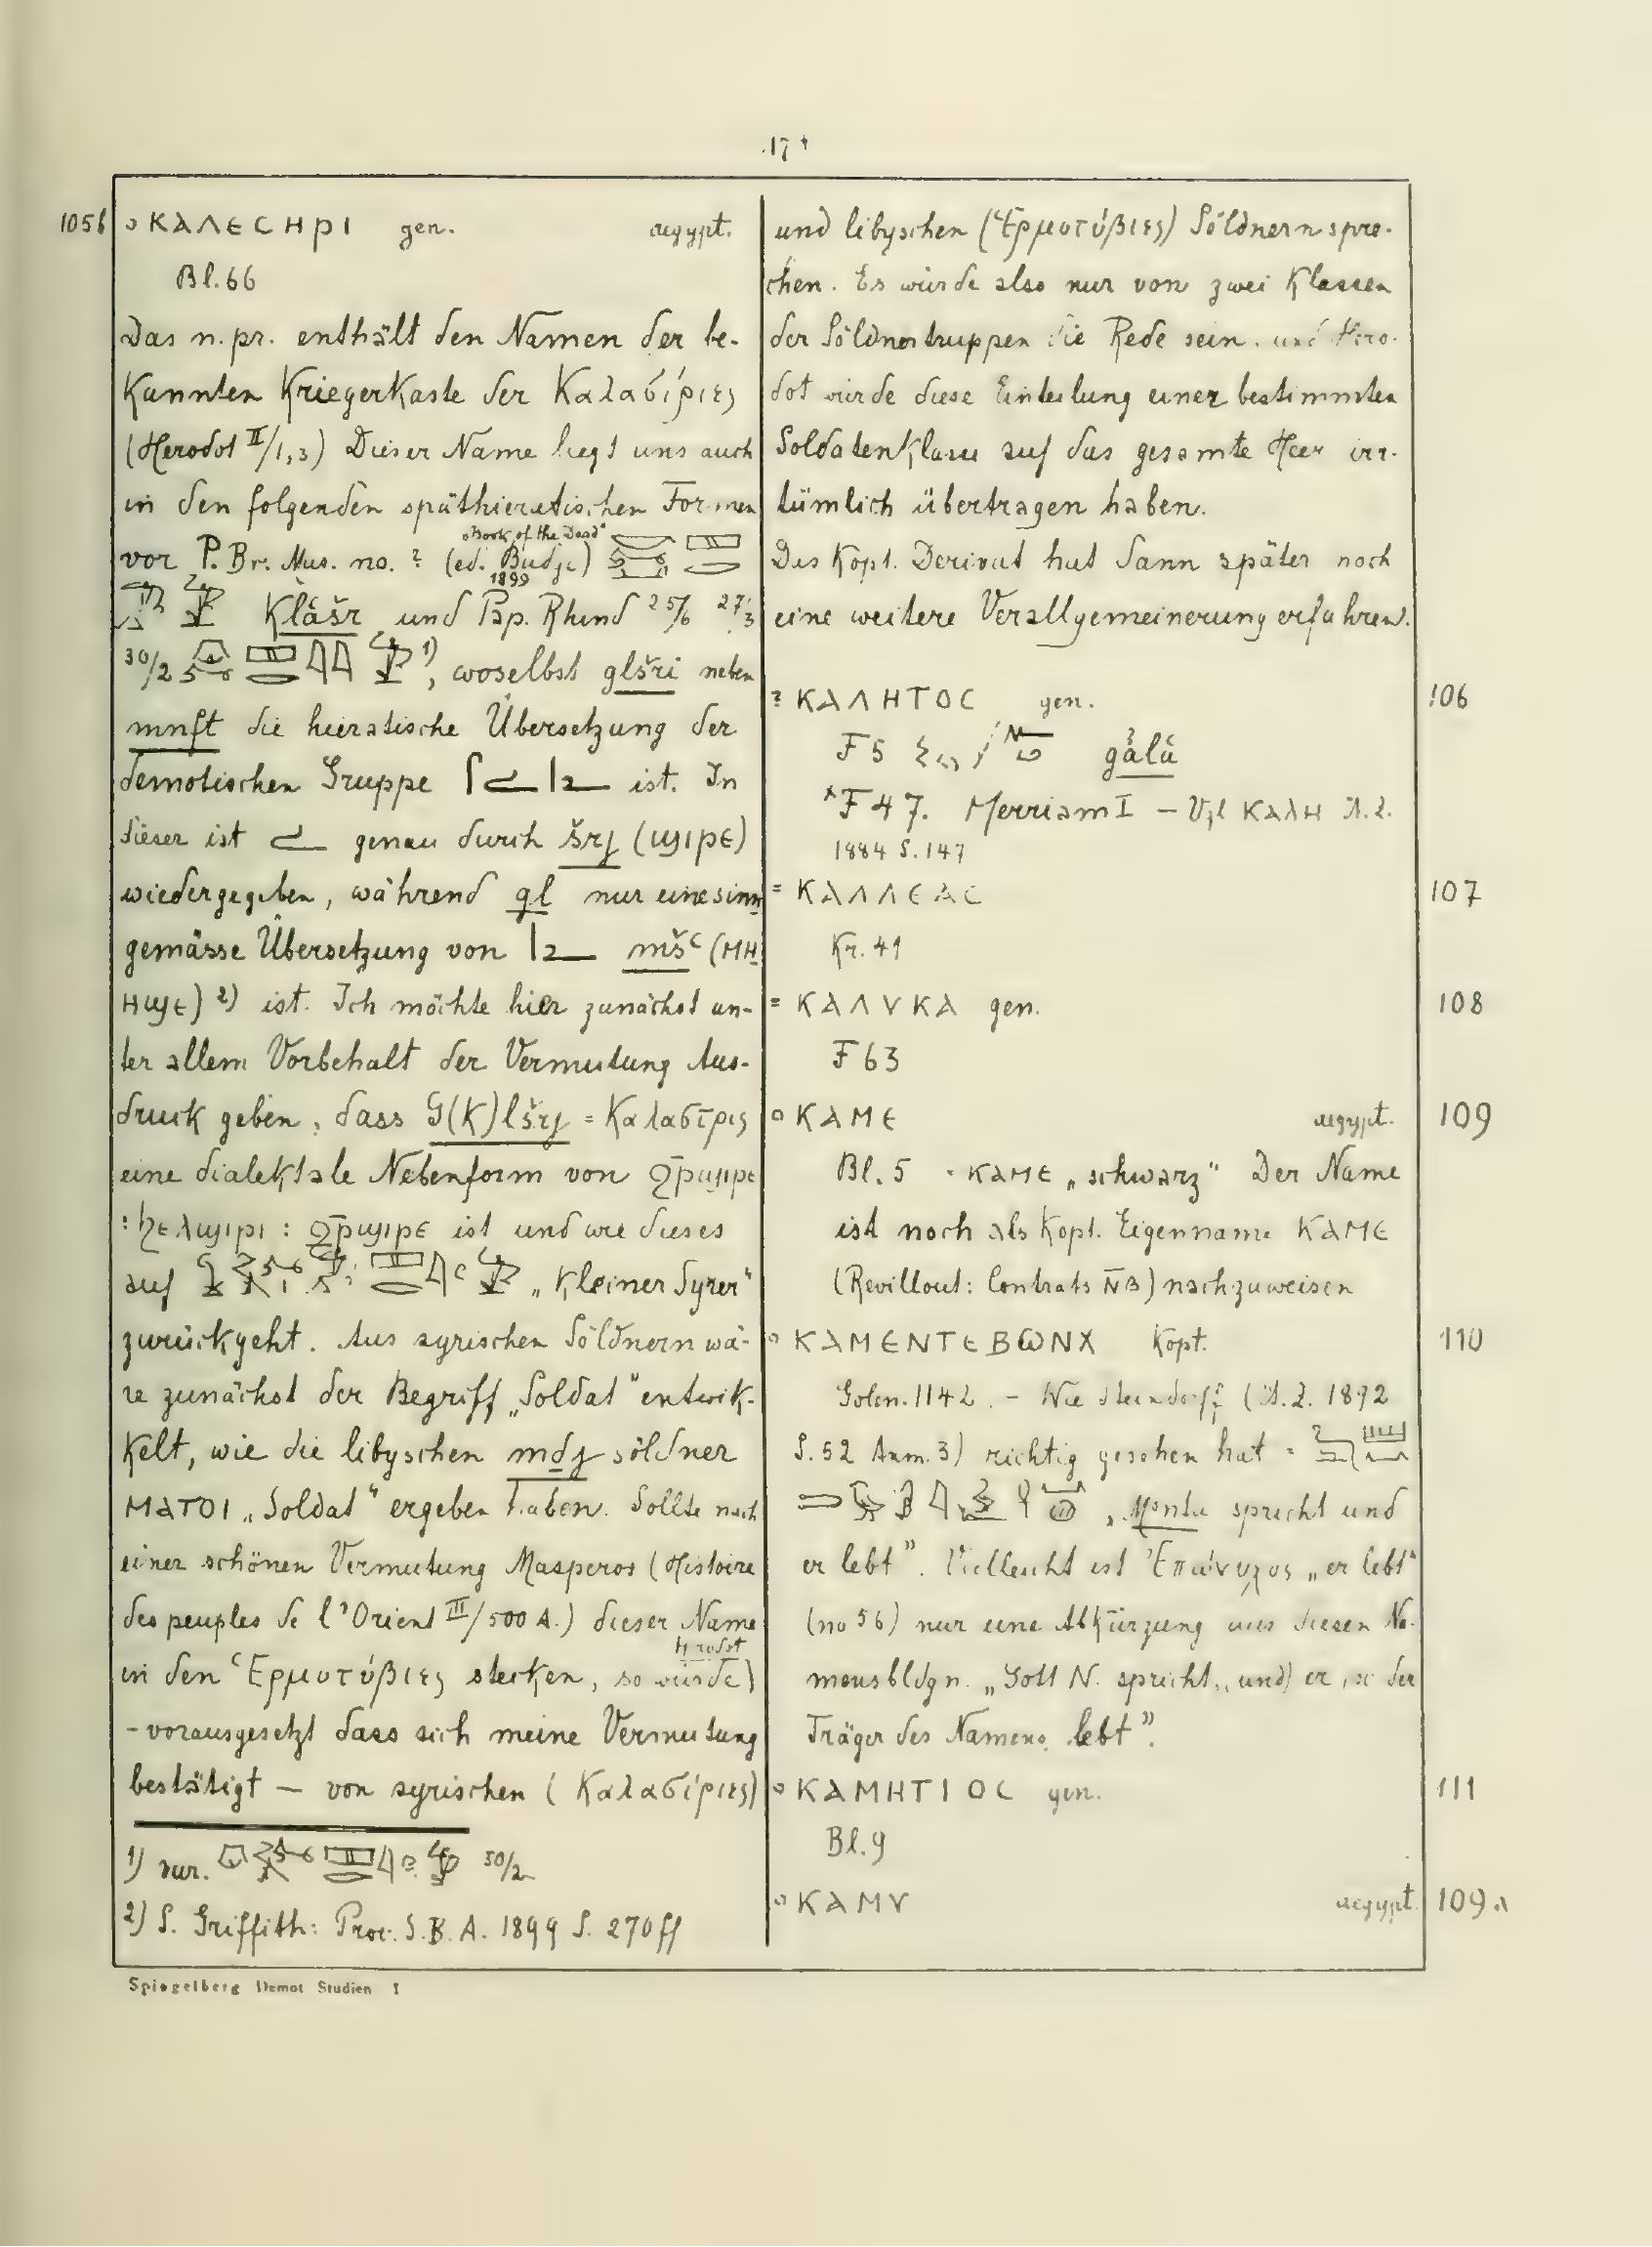 17*
105b ° ΚΑΛΕCΗΡΙ gen. aegypt.
Bl. 66
Das n. pr. enthält den Namen der be-
kannten Kriegerkaste der Καλασίριες
(Herodot II/1,3) Dieser Name liegt uns auch
in den folgenden späthieratischen Formen
vor P. Br. Mus. no. ? (ed. Budge) „Book of the Dead“ 1899
Klåšr und Pap. Rhind 25/6 27/3
30/2 1), woselbst glšri neben
mnft die hieratische Übersetzung der
demotischen Gruppe ist. In
dieser ist genau durch šrj (ϣⲓⲣⲉ)
wiedergegeben, während gl nur eine sinn
gemässe Übersetzung von mšʿ (ⲙⲏ
ⲏϣⲉ) 2) ist. Ich möchte hier zunächst un-
ter allem Vorbehalt der Vermutung Aus-
druck geben, dass G(K)lšrj = Καλασῖρις
eine dialektale Nebenform von ϩ̄ⲣϣⲓⲣⲉ
: ϧⲉⲗϣⲓⲣⲓ : ϩ̄ⲣϣⲓⲣⲉ ist und wie dieses
auf „Kleiner Syrer“
zurückgeht. Aus syrischen Söldnern wä-
re zunächst der Begriff „Soldat“ entwik-
kelt, wie die libyschen mdj söldner
ⲙⲁⲧⲟⲓ „Soldat“ ergeben haben. Sollte nach
einer schönen Vermutung Masperos (Histoire
des peuples de l'Orient III/500 A.) dieser Name
in den Ἑρμοτύβιες stecken, so würde Herodot
- vorausgesetzt dass sich meine Vermutung
bestätigt — von syrischen (Καλασίριες)
1) var. 30/2
2) S. Griffith: Proc. S.B.A. 1899 S. 270 ff
und libyschen (Ἑρμοτύβιες) Söldnern spre-
chen. Es würde also nur von zwei Klassen
der Söldnertruppen die Rede sein. und Hero-
dot würde diese Einteilung einer bestimmten
Soldatenklasse auf das gesamte Heer irr-
tümlich übertragen haben.
Das Kopt. Derivat hat dann später noch
eine weitere Verallgemeinerung erfahren.
? ΚΑΛΗΤΟC gen. 106
F 5 gålå
*F 47. Merriam I — Vgl ΚΑΛΗ Ä. Z.
1884 S. 147
= ΚΑΛΛΕΑC 107
Kr. 41
= ΚΑΛΥΚΑ gen. 108
F 63
° ΚΑΜΕ aegypt. 109
Bl. 5 · ⲕⲁⲙⲉ „schwarz“ Der Name
ist noch als kopt. Eigenname ⲕⲁⲙⲉ
(Revillout: Contrats N̄B) nachzuweisen
° ΚΑΜΕΝΤΕΒΩΝΧ Kopt. 110
Golen. 1142. — Wie Steindorff (Ä. Z. 1892
S. 52 Anm. 3) richtig gesehen hat =
„Montu spricht und
er lebt“. Vielleicht ist Ἐπώνυχος „er lebt“
(no 56) nur eine Abkürzung aus diesen No-
mensbldgn. „Gott N. spricht, und er, sc der
Träger des Namens, lebt“.
° ΚΑΜΗΤΙΟC gen. 111
Bl. 9
° ΚΑΜΥ aegypt. 109a
Spiegelberg Demot Studien I